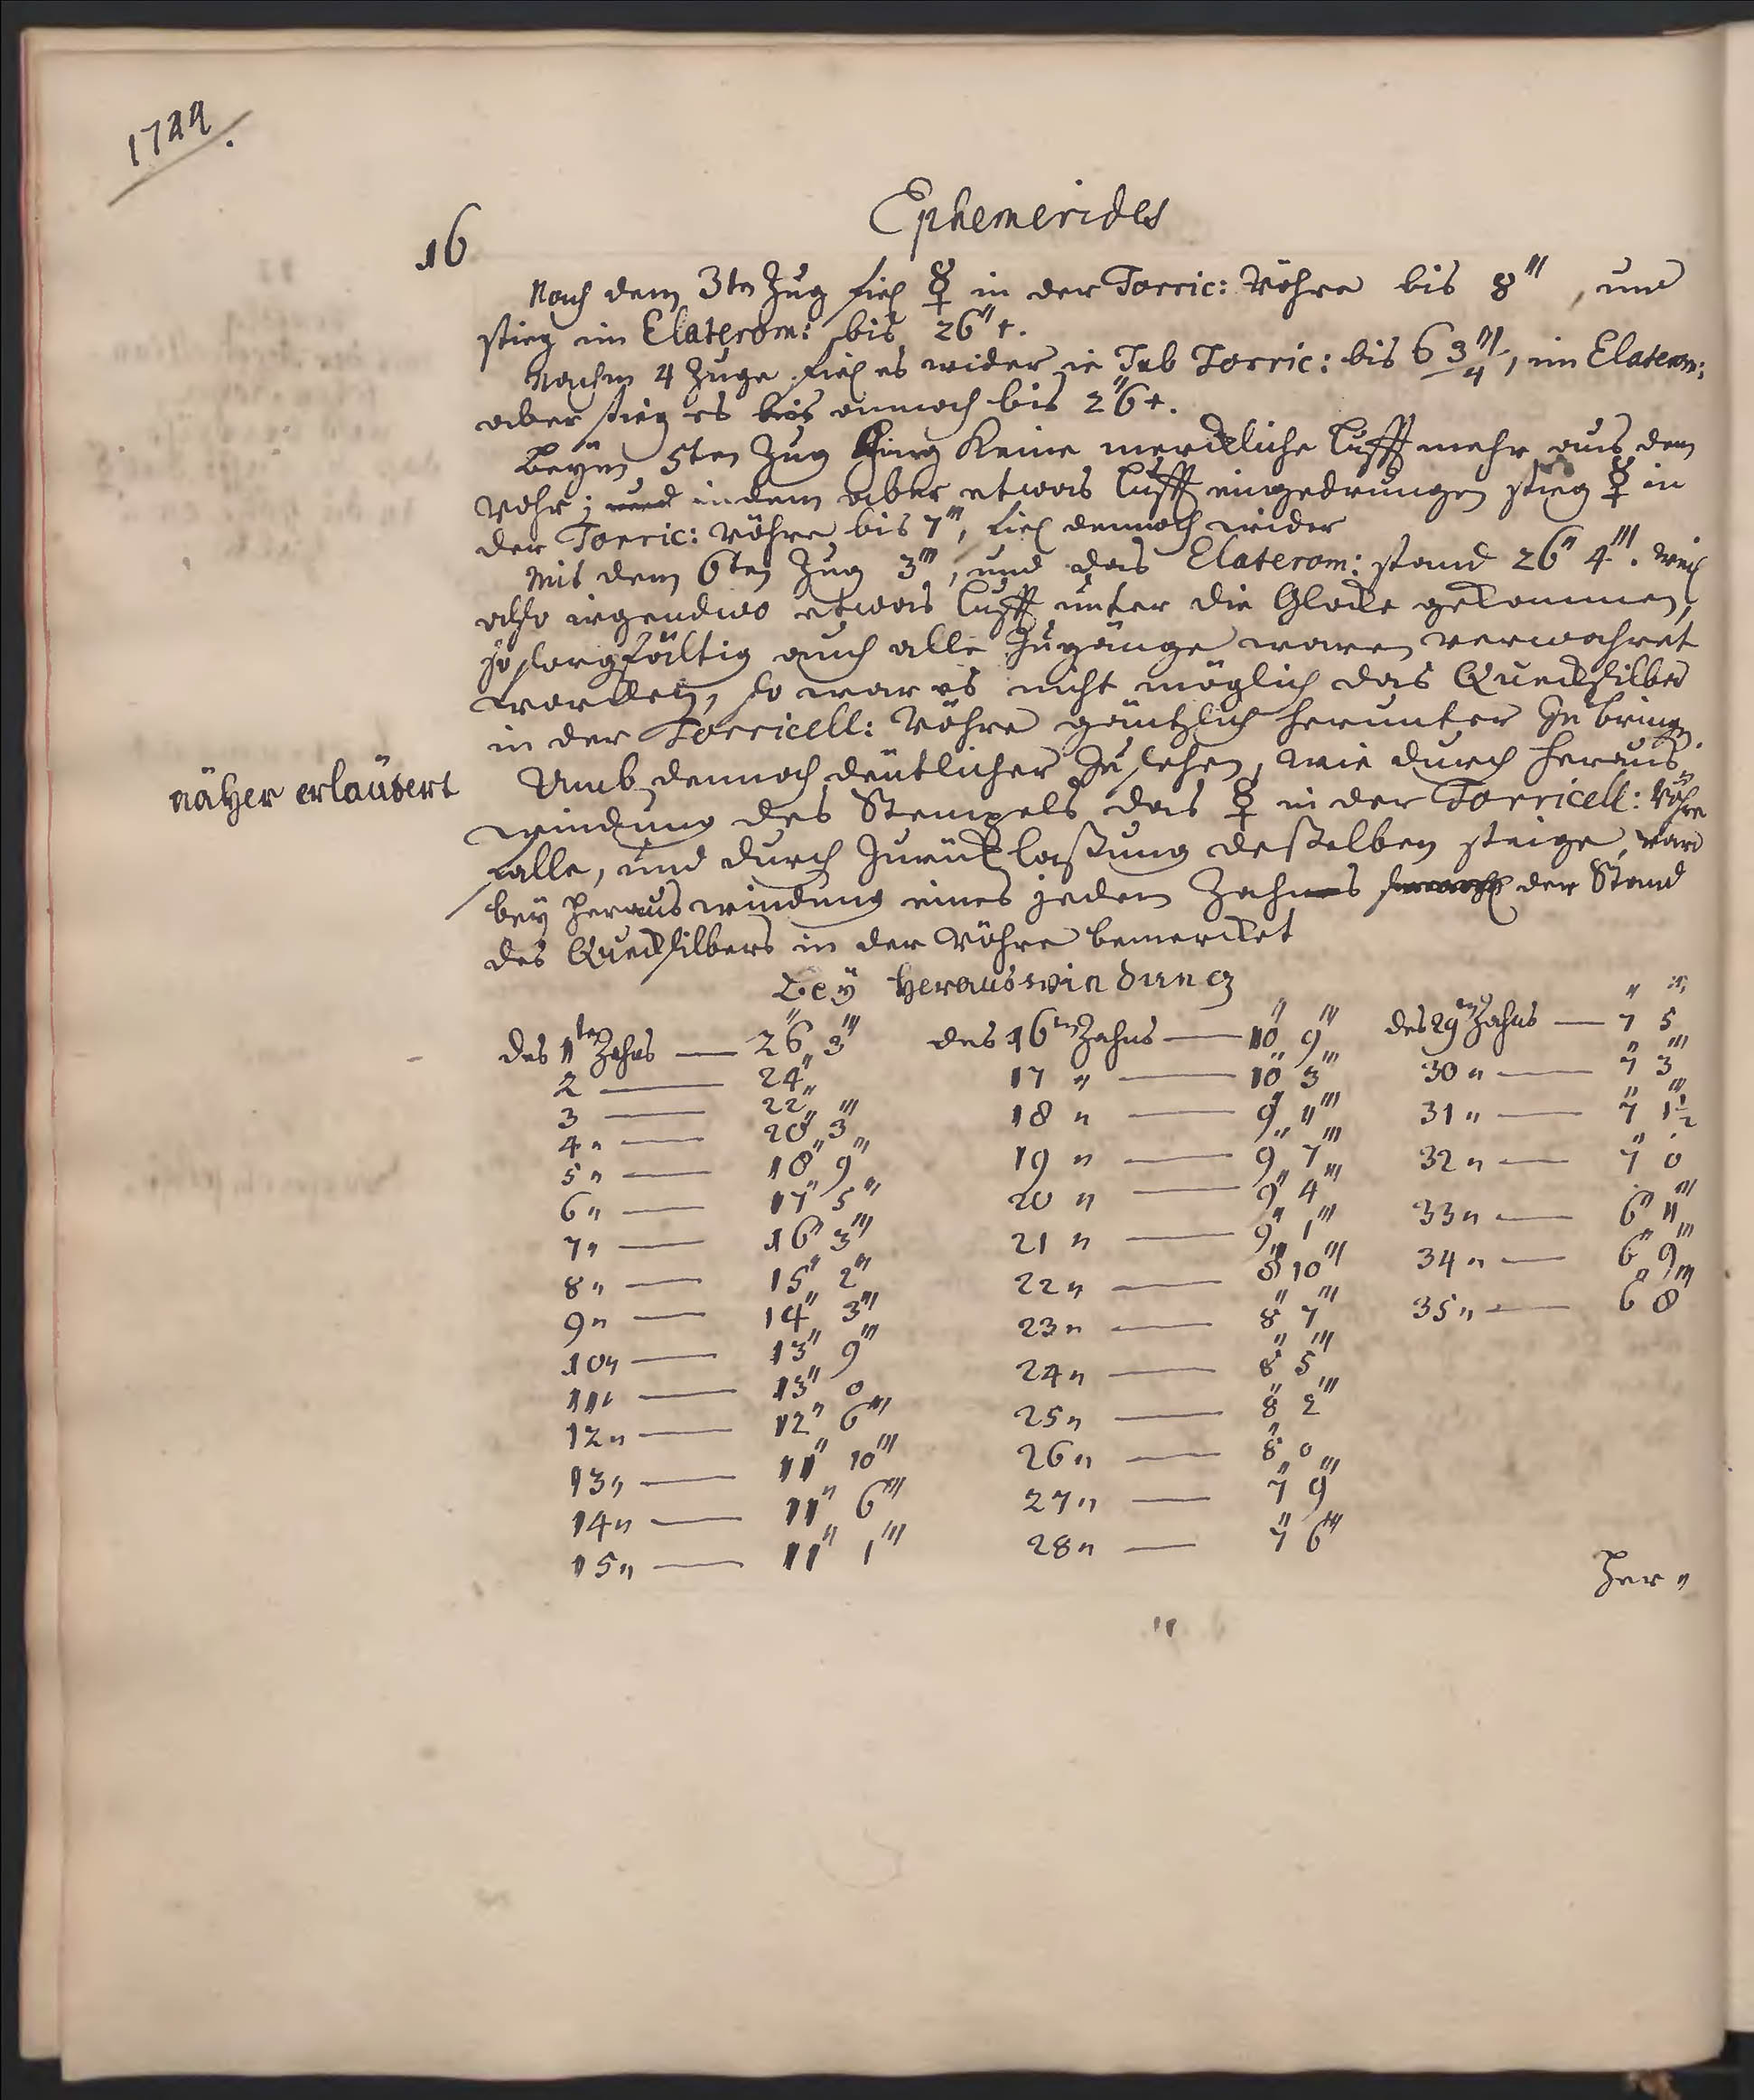 1744.
16
Ephemerides
Nach dem 3ten Zug fiel ☿ in der Torric: Röhre bis 8''', und
stieg im Elaterom: bis 26'' +.
Nachm 4 Zuge fiel es wider in Tub Torric: bis 6 3/4''', im Elaterom:
aber stieg es bis annoch bis 26'' +.
Beÿm 5ten Zug ging keine merckliche Lufft mehr aus dem
Rohr; und indem aber etwas Lufft eingedrungen stieg ☿ in
der Torric: Röhre bis 7''', fiel dennoch wider
Mit dem 6ten Zug 3''', und das Elaterom: stand 26'' 4'''. Weil
also irgendwo etwas Lufft unter die Glocke gekommen,
so sorgfältig auch alle Zugänge waren verwahret
worden, so war es nicht möglich das Quecksilber
in der Torricell: Röhre gäntzlich herunter zu bringen.
näher erläutert
Umb dennoch deütlicher zu sehen, wie durch heraus
windung des Stempels das ☿ in der Torricell: Röhre
falle, und durch Zurücklaßung deßelben steige, ward
beÿ herauswindung eines jeden Zahnes der Stand
des Quecksilbers in der Röhre bemercket
Beÿ Herauswindung
des 1ten Zahns — 26'' 3''' des 16ten Zahns — 10'' 9''' des 29ten Zahns — 7'' 5'''
2 — 24'' 17 " — 10'' 3''' 30 " — 7'' 3'''
3 — 22'' 18 " — 9'' 11''' 31 " — 7'' 1½'''
4 " — 20'' 3''' 19 " — 9'' 7''' 32 " — 7'' 0
5 " — 18'' 9''' 20 " — 9'' 4''' 33 " — 6'' 11'''
6 " — 17'' 5''' 21 " — 9'' 1''' 34 " — 6'' 9'''
7 " — 16'' 3''' 22 " — 8'' 10''' 35 " — 6'' 8'''
8 " — 15'' 2''' 23 " — 8'' 7'''
9 " — 14'' 3''' 24 " — 8'' 5'''
10 " — 13'' 9''' 25 " — 8'' 2'''
11 " — 13'' 0 26 " — 8'' 0
12 " — 12'' 6''' 27 " — 7'' 9'''
13 " — 11'' 10''' 28 " — 7'' 6'''
14 " — 11'' 6'''
15 " — 11'' 1'''
Her "